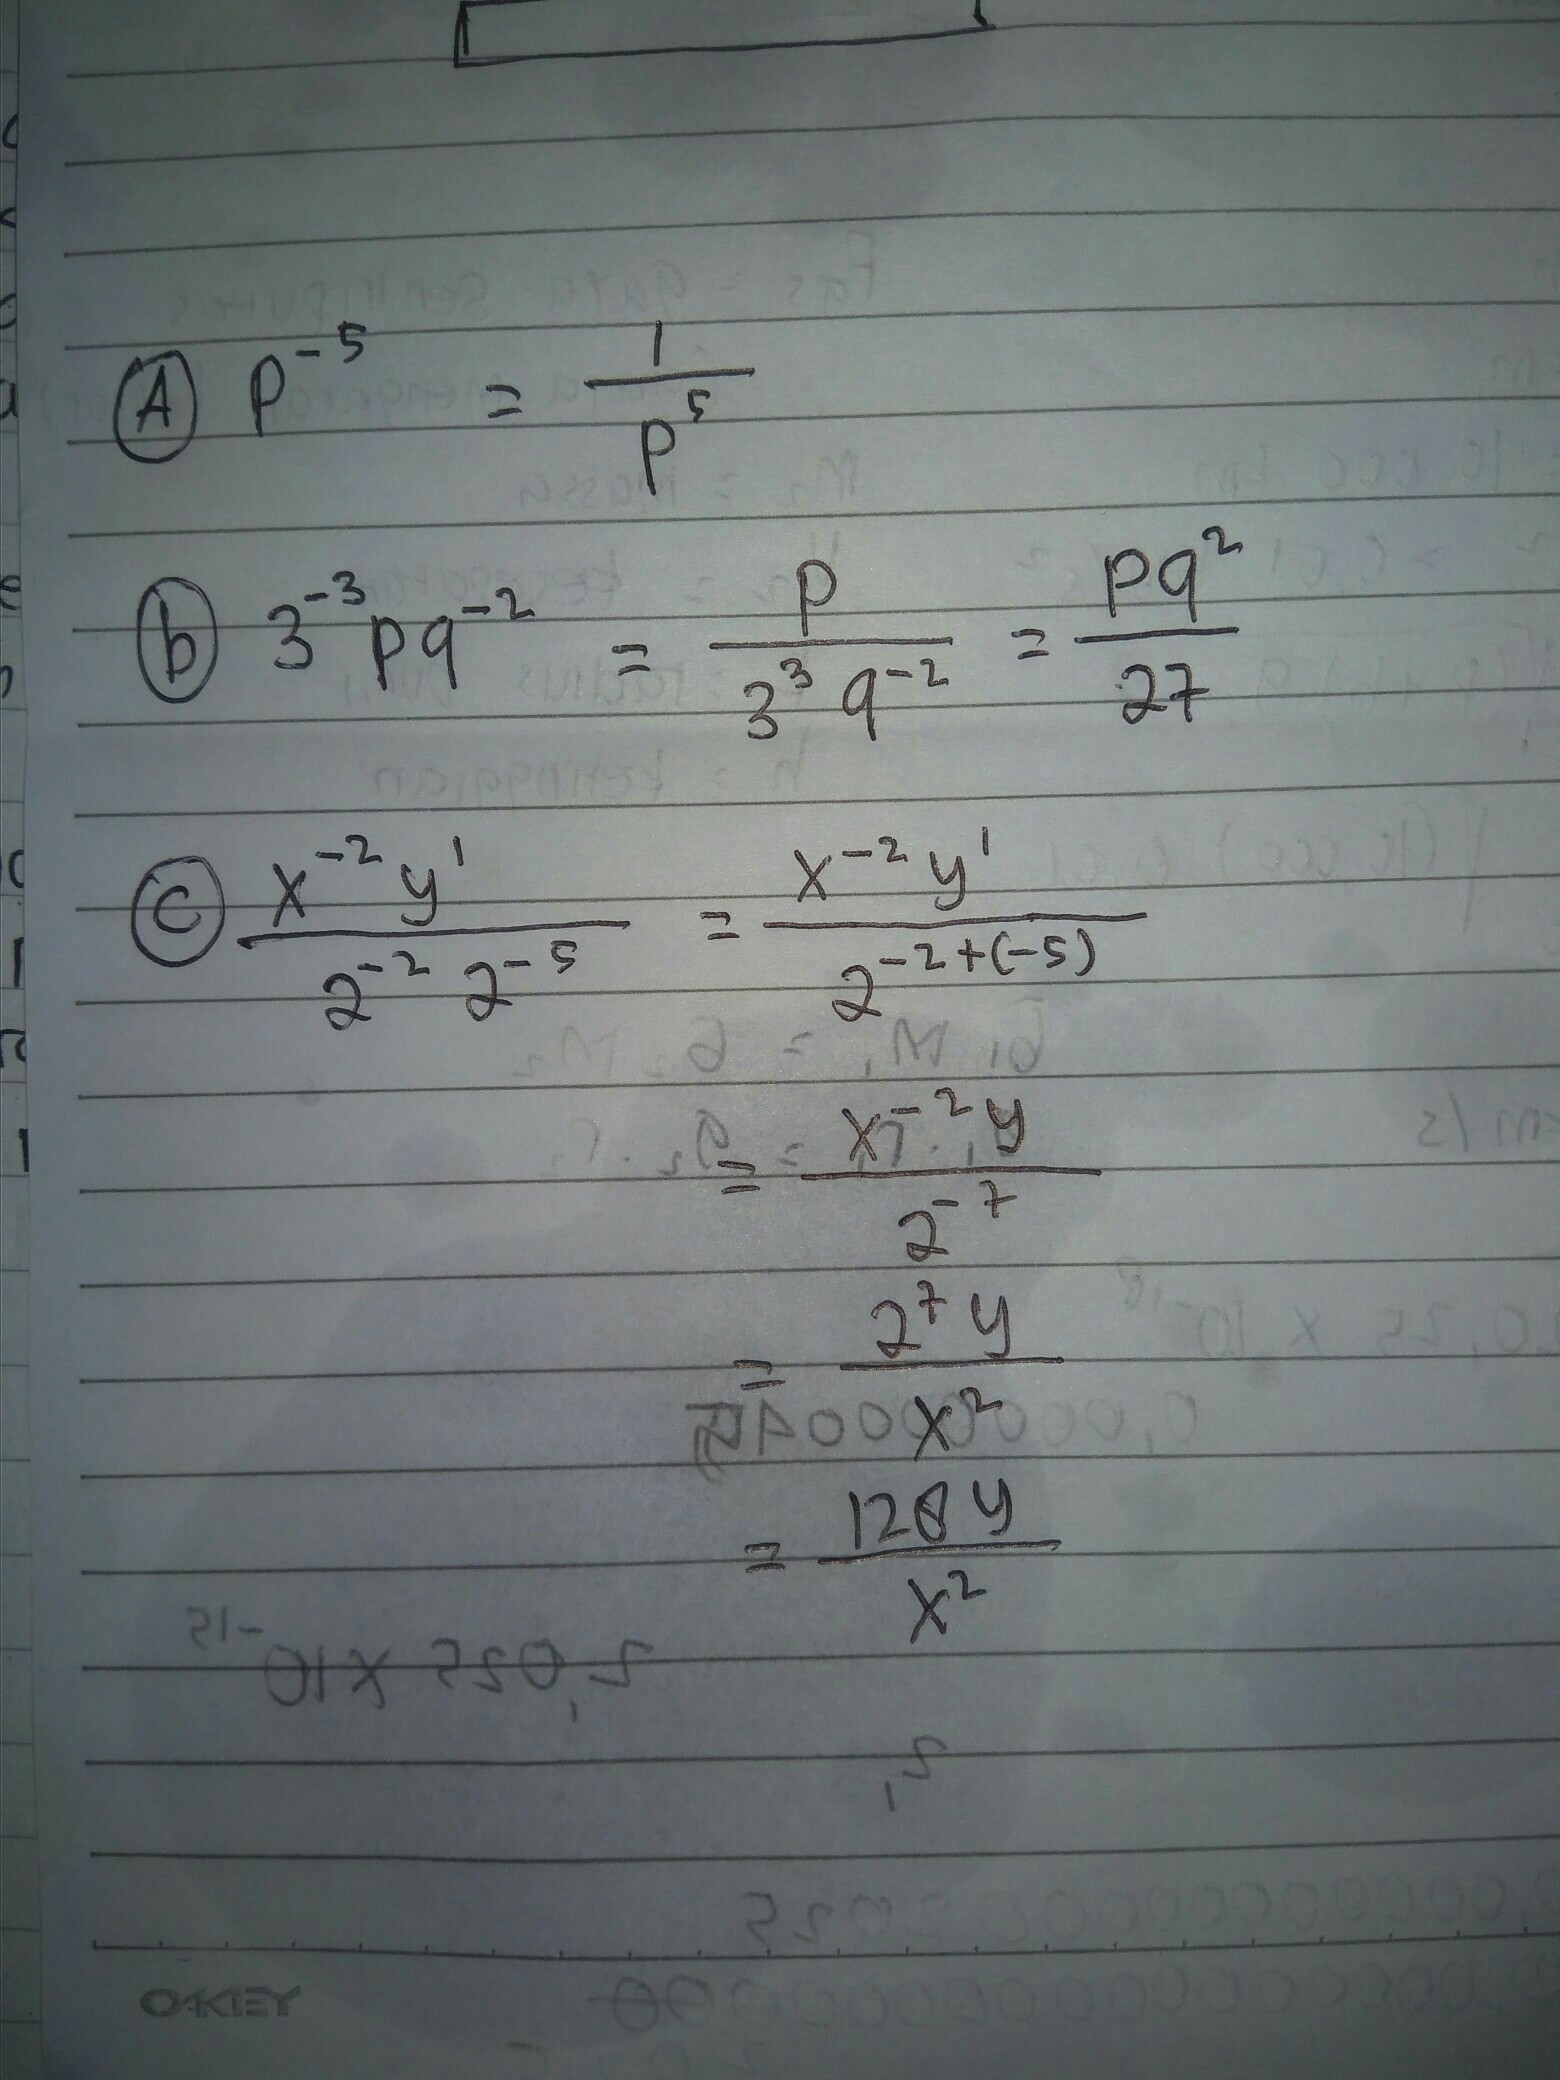 (A) p⁻⁵ = 1/p⁵
(b) 3⁻³pq⁻² = p/3³q⁻² = pq²/27
(C) x⁻²y¹/2⁻²2⁻⁵ = x⁻²y¹/2⁻²⁺⁽⁻⁵⁾
= x⁻²y/2⁻⁷
= 2⁷y/x²
= 128y/x²
OKEY